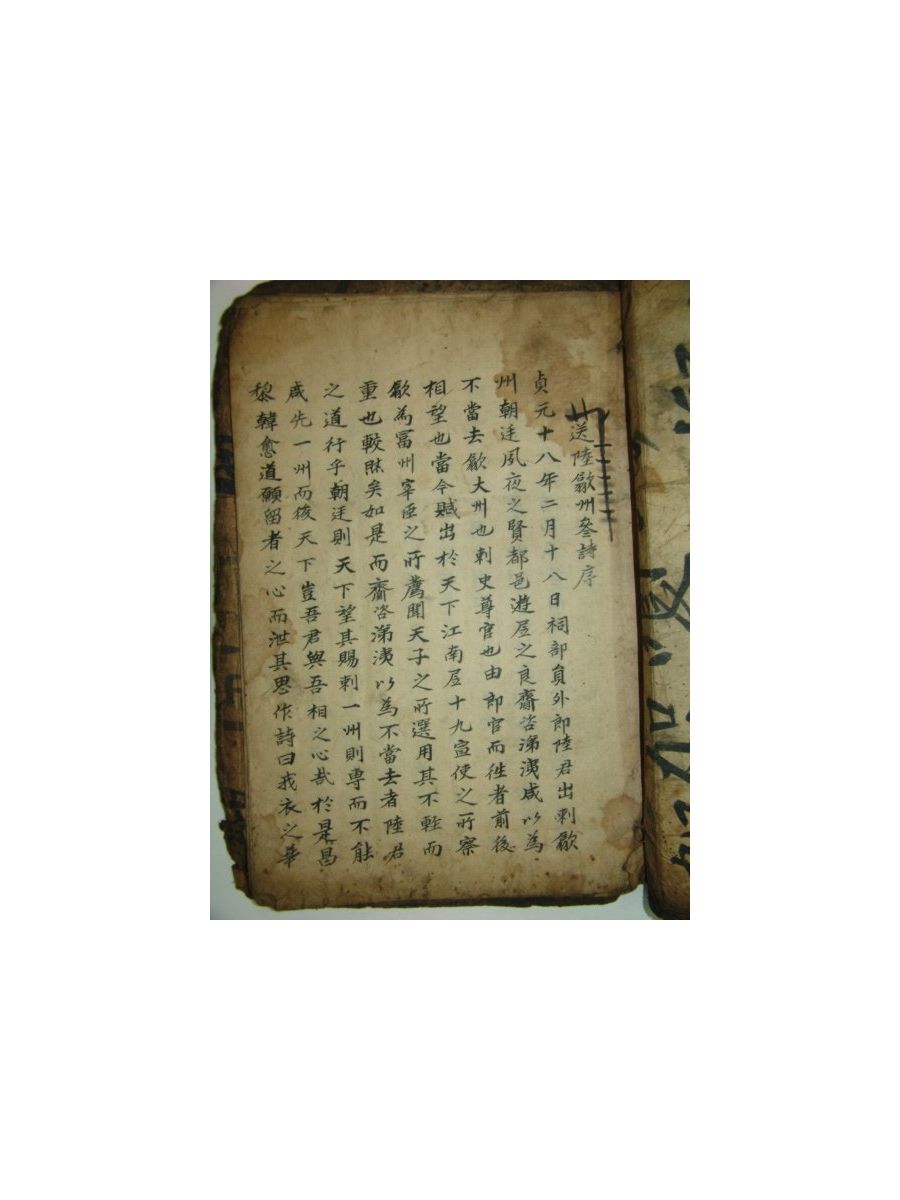 送陸歙州叅詩序
貞元十八年二月十八日祠部員外郎陸君出刺歙
州朝廷夙夜之賢都邑遊居之良齋咨涕洟咸以為
不當去歙大州也刺史尊官也由郎官而徃者前後
相望也當今賦出於天下江南居十九宣使之所察
歙為冨州宰臣之所薦聞天子之所選用其不輕而
重也較然矣如是而齋咨涕洟以為不當去者陸君
之道行乎朝廷則天下望其賜刺一州則専而不能
咸先一州而後天下豈吾君與吾相之心哉於是昌
黎韓愈道願留者之心而泄其思作詩曰我衣之華